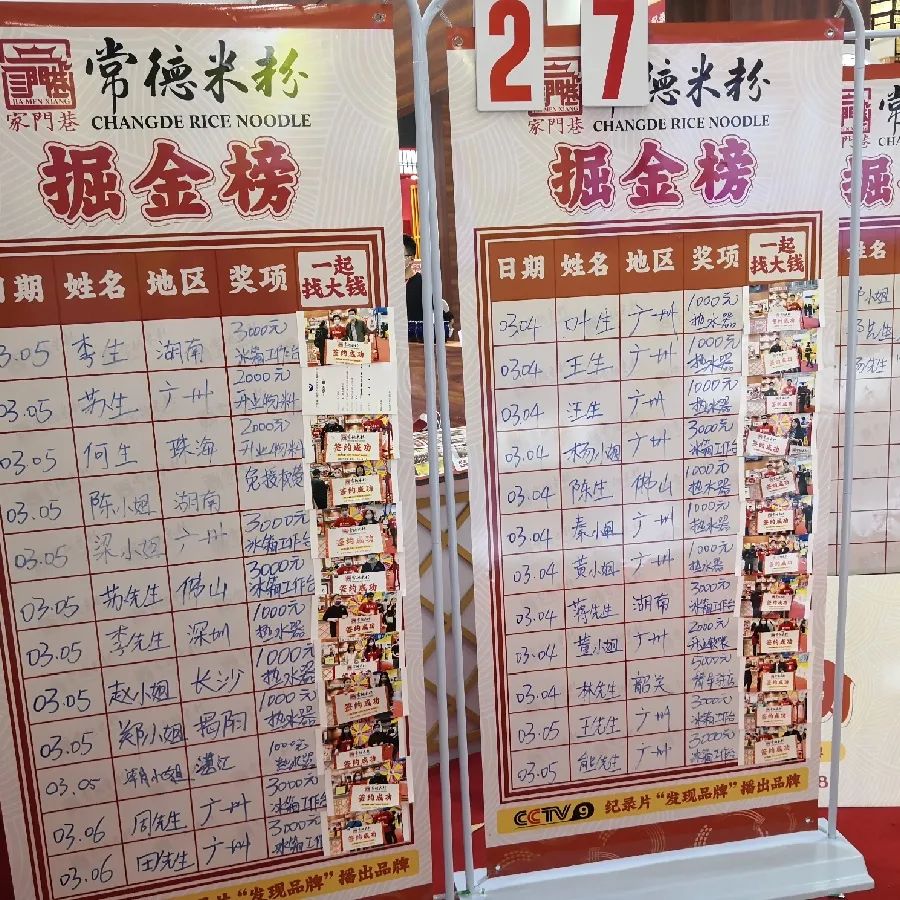 常德米粉
JIA MEN XIANG
家門巷
CHANGDE RICE NOODLE
掘金榜
日期 姓名 地区 奖项 一起找大钱
3.05 李生 湖南 3000元 冰箱工作台
03.05 苏生 广州 2000元 开业物料
03.05 何生 珠海 2000元 开业物料
03.05 陈小姐 湖南
03.05 梁小姐 广州 3000元 冰箱工作台
03.05 苏先生 佛山 3000元 冰箱工作台
03.05 李先生 深圳 1000元 热水器
03.05 赵小姐 长沙 1000元 热水器
03.05 郑小姐 揭阳 1000元 热水器
03.05 湛江 1000元 热水器
03.06 周先生 广州 3000元 冰箱工作台
03.06 田先生 广州 3000元 冰箱工
签约成功
“发现品牌”播出品牌
2 7
德米粉
家門巷
CHANGDE RICE NOODLE
掘金榜
日期 姓名 地区 奖项 一起找大钱
03.04 叶生 广州 1000元 热水器
03.04 王生 广州 1000元 热水器
03.04 汪生 广州 1000元 热水器
03.04 杨小姐 广州 3000元 冰箱工作台
03.04 陈生 佛山 1000元 热水器
03.04 秦小姐 广州 1000元 热水器
03.04 黄小姐 广州 1000元 热水器
03.04 蒋先生 湖南 3000元 冰箱工作台
03.04 董小姐 广州 2000元
03.04 林先生 5000元
03.05 王先生 广州 3000元 冰箱工作台
03.05 熊先生 广州 3000元 冰箱工作台
签约成功
CCTV 9 纪录片“发现品牌”播出品牌
常
CHA
掘
日期 姓名
小姐